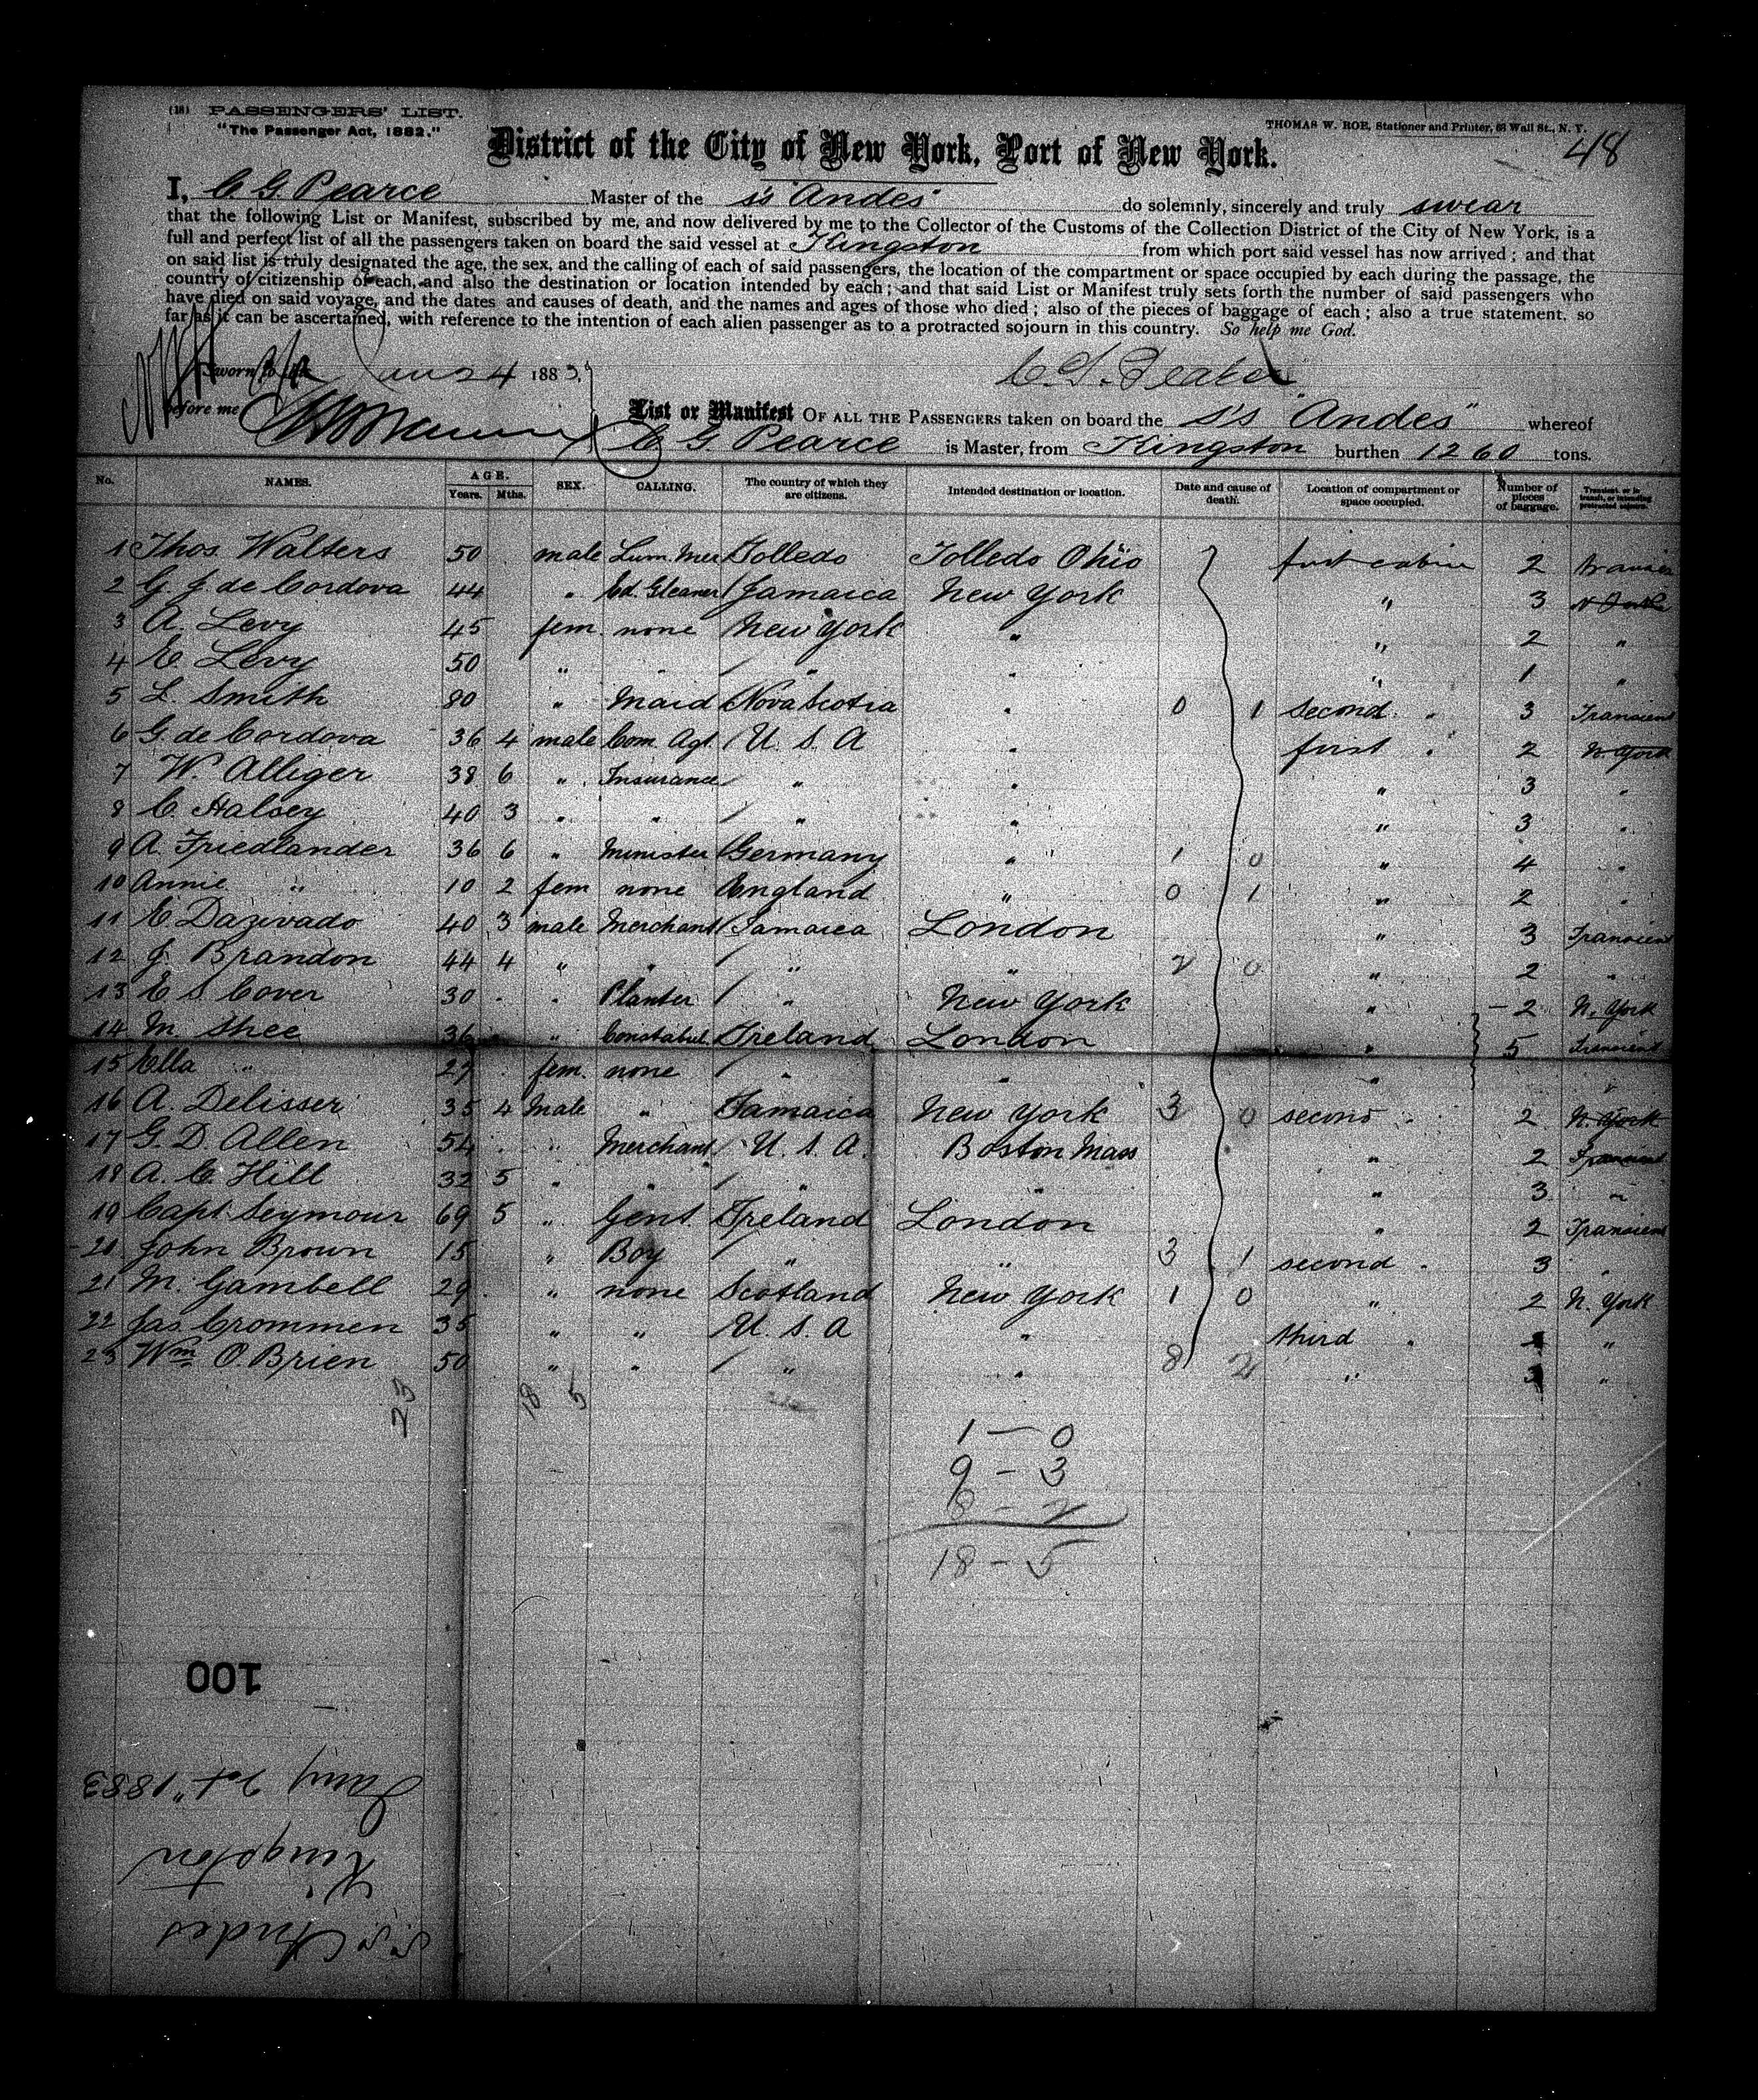 (18) PASSENGERS' LIST.
"The Passenger Act, 1882."
THOMAS W. ROE, Stationer and Printer, 58 Wall St., N. Y.
48
District of the City of New York, Port of New York.
I, C G Pearce Master of the s's "Andes" do solemnly, sincerely and truly swear
that the following List or Manifest, subscribed by me, and now delivered by me to the Collector of the Customs of the Collection District of the City of New York, is a
full and perfect list of all the passengers taken on board the said vessel at Kingston from which port said vessel has now arrived; and that
on said list is truly designated the age, the sex, and the calling of each of said passengers, the location of the compartment or space occupied by each during the passage, the
country of citizenship of each, and also the destination or location intended by each; and that said List or Manifest truly sets forth the number of said passengers who
have died on said voyage, and the dates and causes of death, and the names and ages of those who died; also of the pieces of baggage of each; also a true statement, so
far as it can be ascertained, with reference to the intention of each alien passenger as to a protracted sojourn in this country. So help me God.
Sworn to 188 3,
before me
List or Manifest OF ALL THE PASSENGERS taken on board the s's "Andes" whereof
C G. Pearce is Master, from Kingston burthen 1260 tons.
No. NAMES. AGE. Years. Mths. SEX. CALLING. The country of which they are citizens. Intended destination or location. Date and cause of death. Location of compartment or space occupied. Number of pieces of baggage. Transient, or in transit, or intending protracted sojourn.
1 Thos. Walters 50 male Lum. Mer Tolledo Tolledo Ohio first cabin 2 Transient
2 G. J. de Cordova 44 " Ed. Gleaner Jamaica New York " 3
3 A. Levy 45 fem. none New York " " 2 "
4 E. Levy 50 " " " " " 1 "
5 L. Smith 80 " Maid Nova Scotia " 0 1 second " 3 Transient
6 G. de Cordova 36 4 male Com. Agt. U. S. A " first " 2 N. York
7 W. Alliger 38 6 " Insurance " " " 3 "
8 C. Halsey 40 3 " " " " " 3 "
9 A. Friedlander 36 6 " Minister Germany " 1 0 " 4 "
10 Annie " 10 2 fem none England " 0 1 " 2 "
11 E. Dazevado 40 3 male Merchant Jamaica London " 3 Transient
12 J. Brandon 44 4 " " " " 2 0 " 2 "
13 E S. Cover 30 " Planter " New York " 2 N. York
14 M. Shee 36 " Constabul. Ireland London " 5 Transient
15 Ella " 27 fem. none " " " "
16 A. Delisser 35 4 Male " Jamaica New York 3 0 second " 2 N. York
17 G. D. Allen 54 " Merchant U. S. A. Boston Mass " 2 Transient
18 A. C. Hill 32 5 " " " " " 3 "
19 Capt. Seymour 69 5 " Gent. Ireland London " 2 Transient
20 John Brown 15 " Boy " " 3 1 second " 3 "
21 M. Gambell 29 " none Scotland New York 1 0 " 2 N. York
22 Jas. Crommen 35 " " U. S. A " third " "
23 Wm O. Brien 50 " " " " 8 2 " "
23 18 5
1 — 0
9 - 3
8 - 2
18 - 5
100
s.s. Andes
Kingston
1883